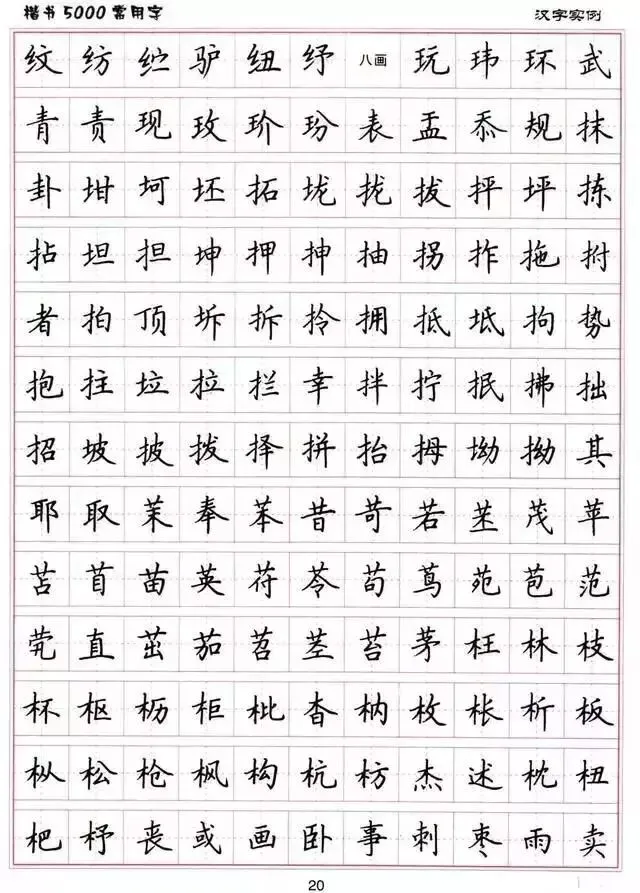 楷书5000常用字 汉字实例
纹纺纻驴纽纾八画玩玮环武
青责现玫玠玢表盂忝规抹
卦坩坷坯拓垅拢拔抨坪拣
拈坦担坤押抻抽拐拃拖拊
者拍顶坼拆拎拥抵坻拘势
抱拄垃拉拦幸拌拧抿拂拙
招坡披拨择拼抬拇坳拗其
耶取茉奉苯昔苛若茂苹
苫苜苗英苻苓茍茑苑苞范
茕直茁茄苕茎苔茅枉林枝
杯枢枥柜枇杳枘枚枨析板
枞松枪枫构杭枋杰述枕杻
杷杼丧或画卧事刺枣雨卖
20